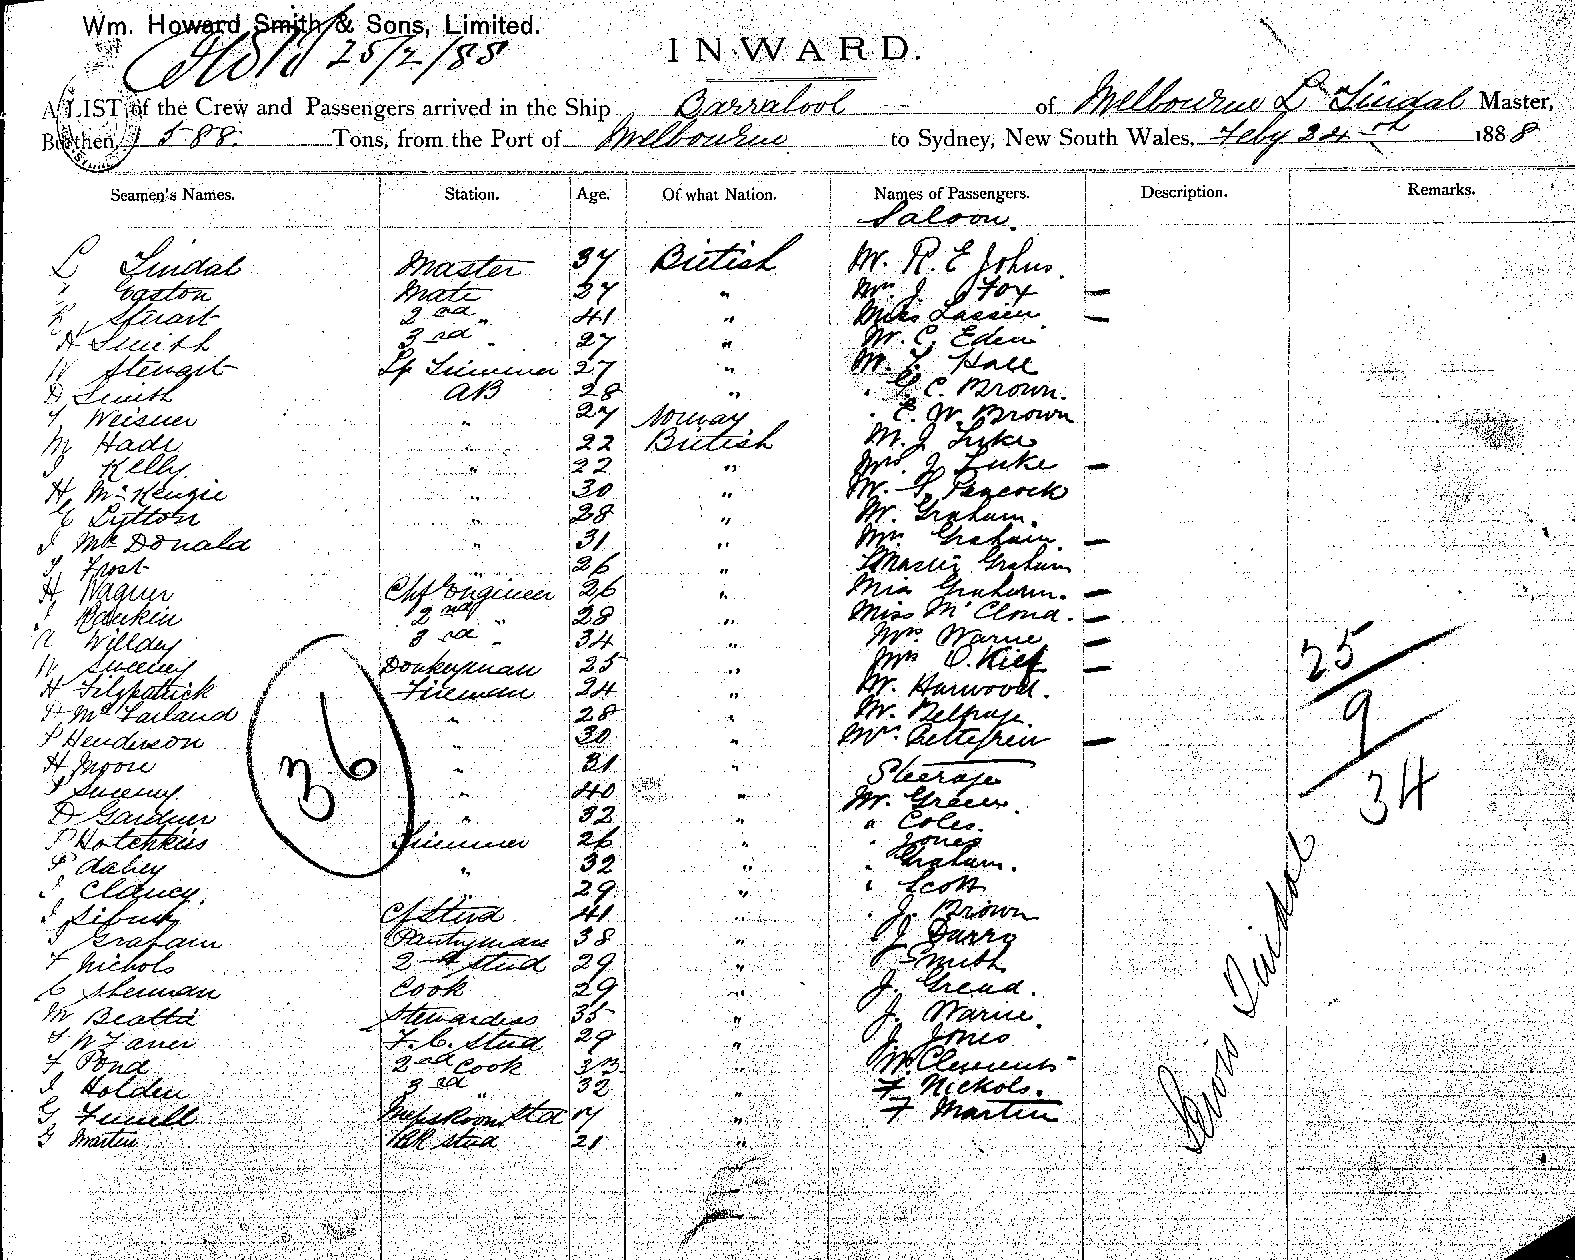 Wm. Howard Smith & Sons, Limited.
25/2/88
INWARD.
A LIST of the Crew and Passengers arrived in the Ship Barrabool of Melbourne L Tindal Master,
Burthen, 588 Tons, from the Port of Melbourne to Sydney, New South Wales, Feby 24th 1888
Seamen's Names. Station. Age. Of what Nation. Names of Passengers. Description. Remarks.
Saloon.
L Tindal Master 37 British Mr. R. E Johns.
Easton Mate 27 " Mrs J. Fox —
R Stuart 2nd " 41 " Miss Lassen —
H Smith 3rd " 27 " Mr. C. Eden
W Lp Trimmer 27 " Mr. Hall
D Smith AB 28 " " C. Brown.
Weisner " 27 Norway " E. W. Brown
M " 22 British Mr. J. Luke
J Kelly " 22 " Mrs. J. Luke —
H. McKenzie " 30 " Mr. Peacock
E Lytton " 28 " Mr. Graham.
J. McDonald " 31 " Mrs Graham. —
Frost " 26 " Master Graham
H Wagner Chf Engineer 26 " Miss Graham. —
Rankin 2nd " 28 " Miss McCloud. —
Willdey 3rd " 34 " Mrs. Warne —
W Sweeney Donkeyman 25 " Mrs O. Kief —
H Fitzpatrick Fireman 24 " Mr. Harwood.
H McFarland " 28 " Mr.
P Henderson " 30 " Mrs. —
H Moore " 31 " Steerage
J Sweeney " 40 " Mr. Green.
D Gardner " 32 " " Coles.
P Hotchkiss Trimmer 26 " " Jones
P. " 32 " " Graham.
J Clancy. " 29 " " Scott
J Cf Stud 41 " " J. Brown
J Graham Pantryman 38 " J Barry
F Nichols 2nd Stud 29 " Smith
C Sherman Cook 29 " J.
M Stewardess 35 " J. Warne.
F.C. Stud 29 " J. Jones
F Pond 2nd Cook 33 " W. Clements
J Holden 3rd " 32 " F Nichols.
G Messroom Std 17 " F Martin
G Martin Stud 21 "
36
25
9
34
Tindal